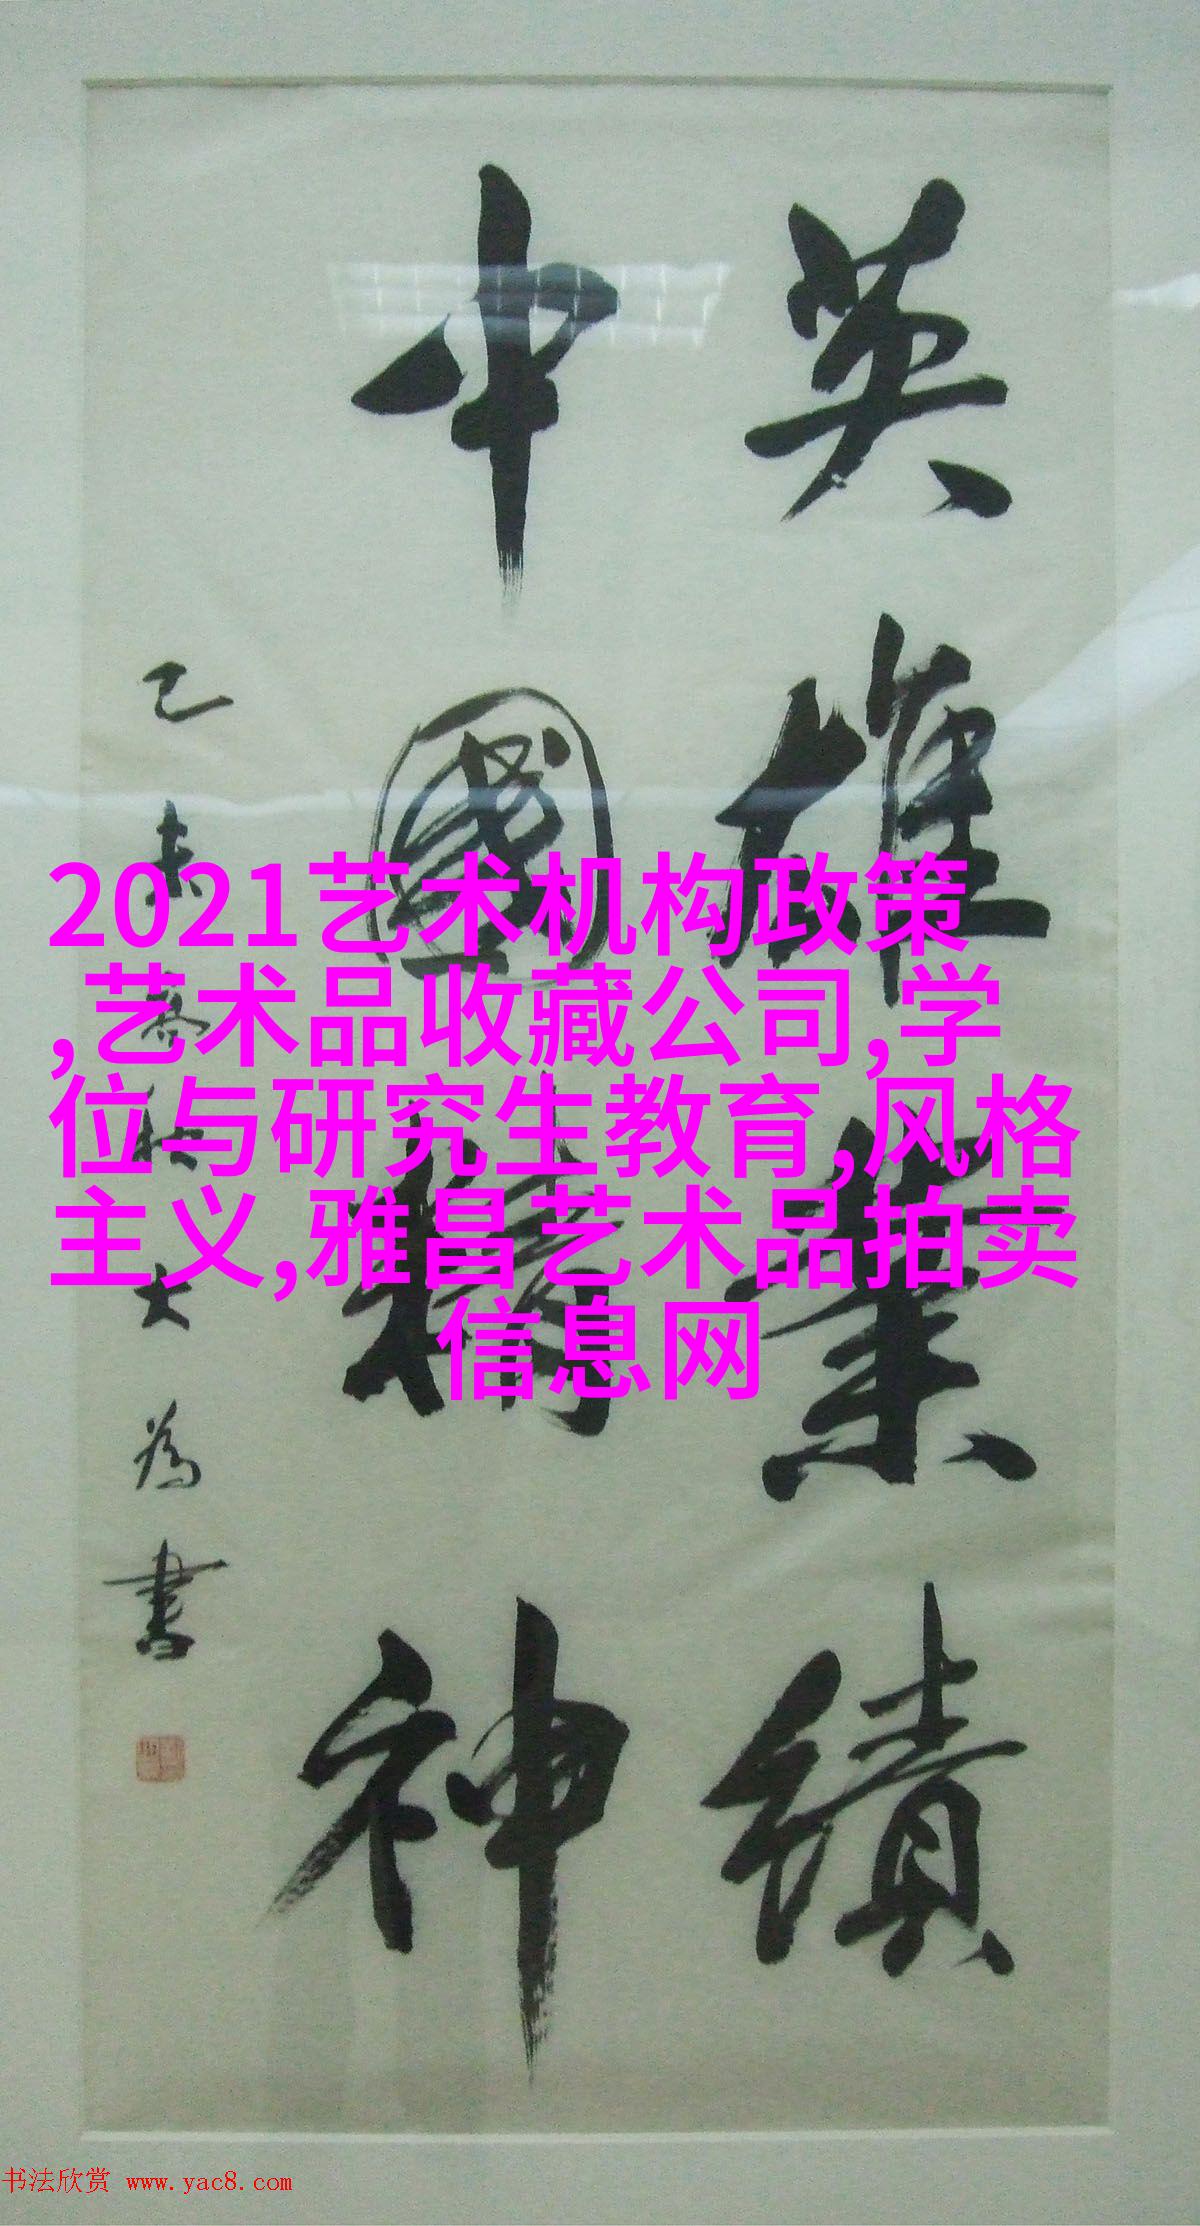 英雄業績
中國精神
乙未春杜大為書
2021艺术机构政策
,艺术品收藏公司,学
位与研究生教育,风格
主义,雅昌艺术品拍卖
信息网
书法欣赏 www.yac8.com